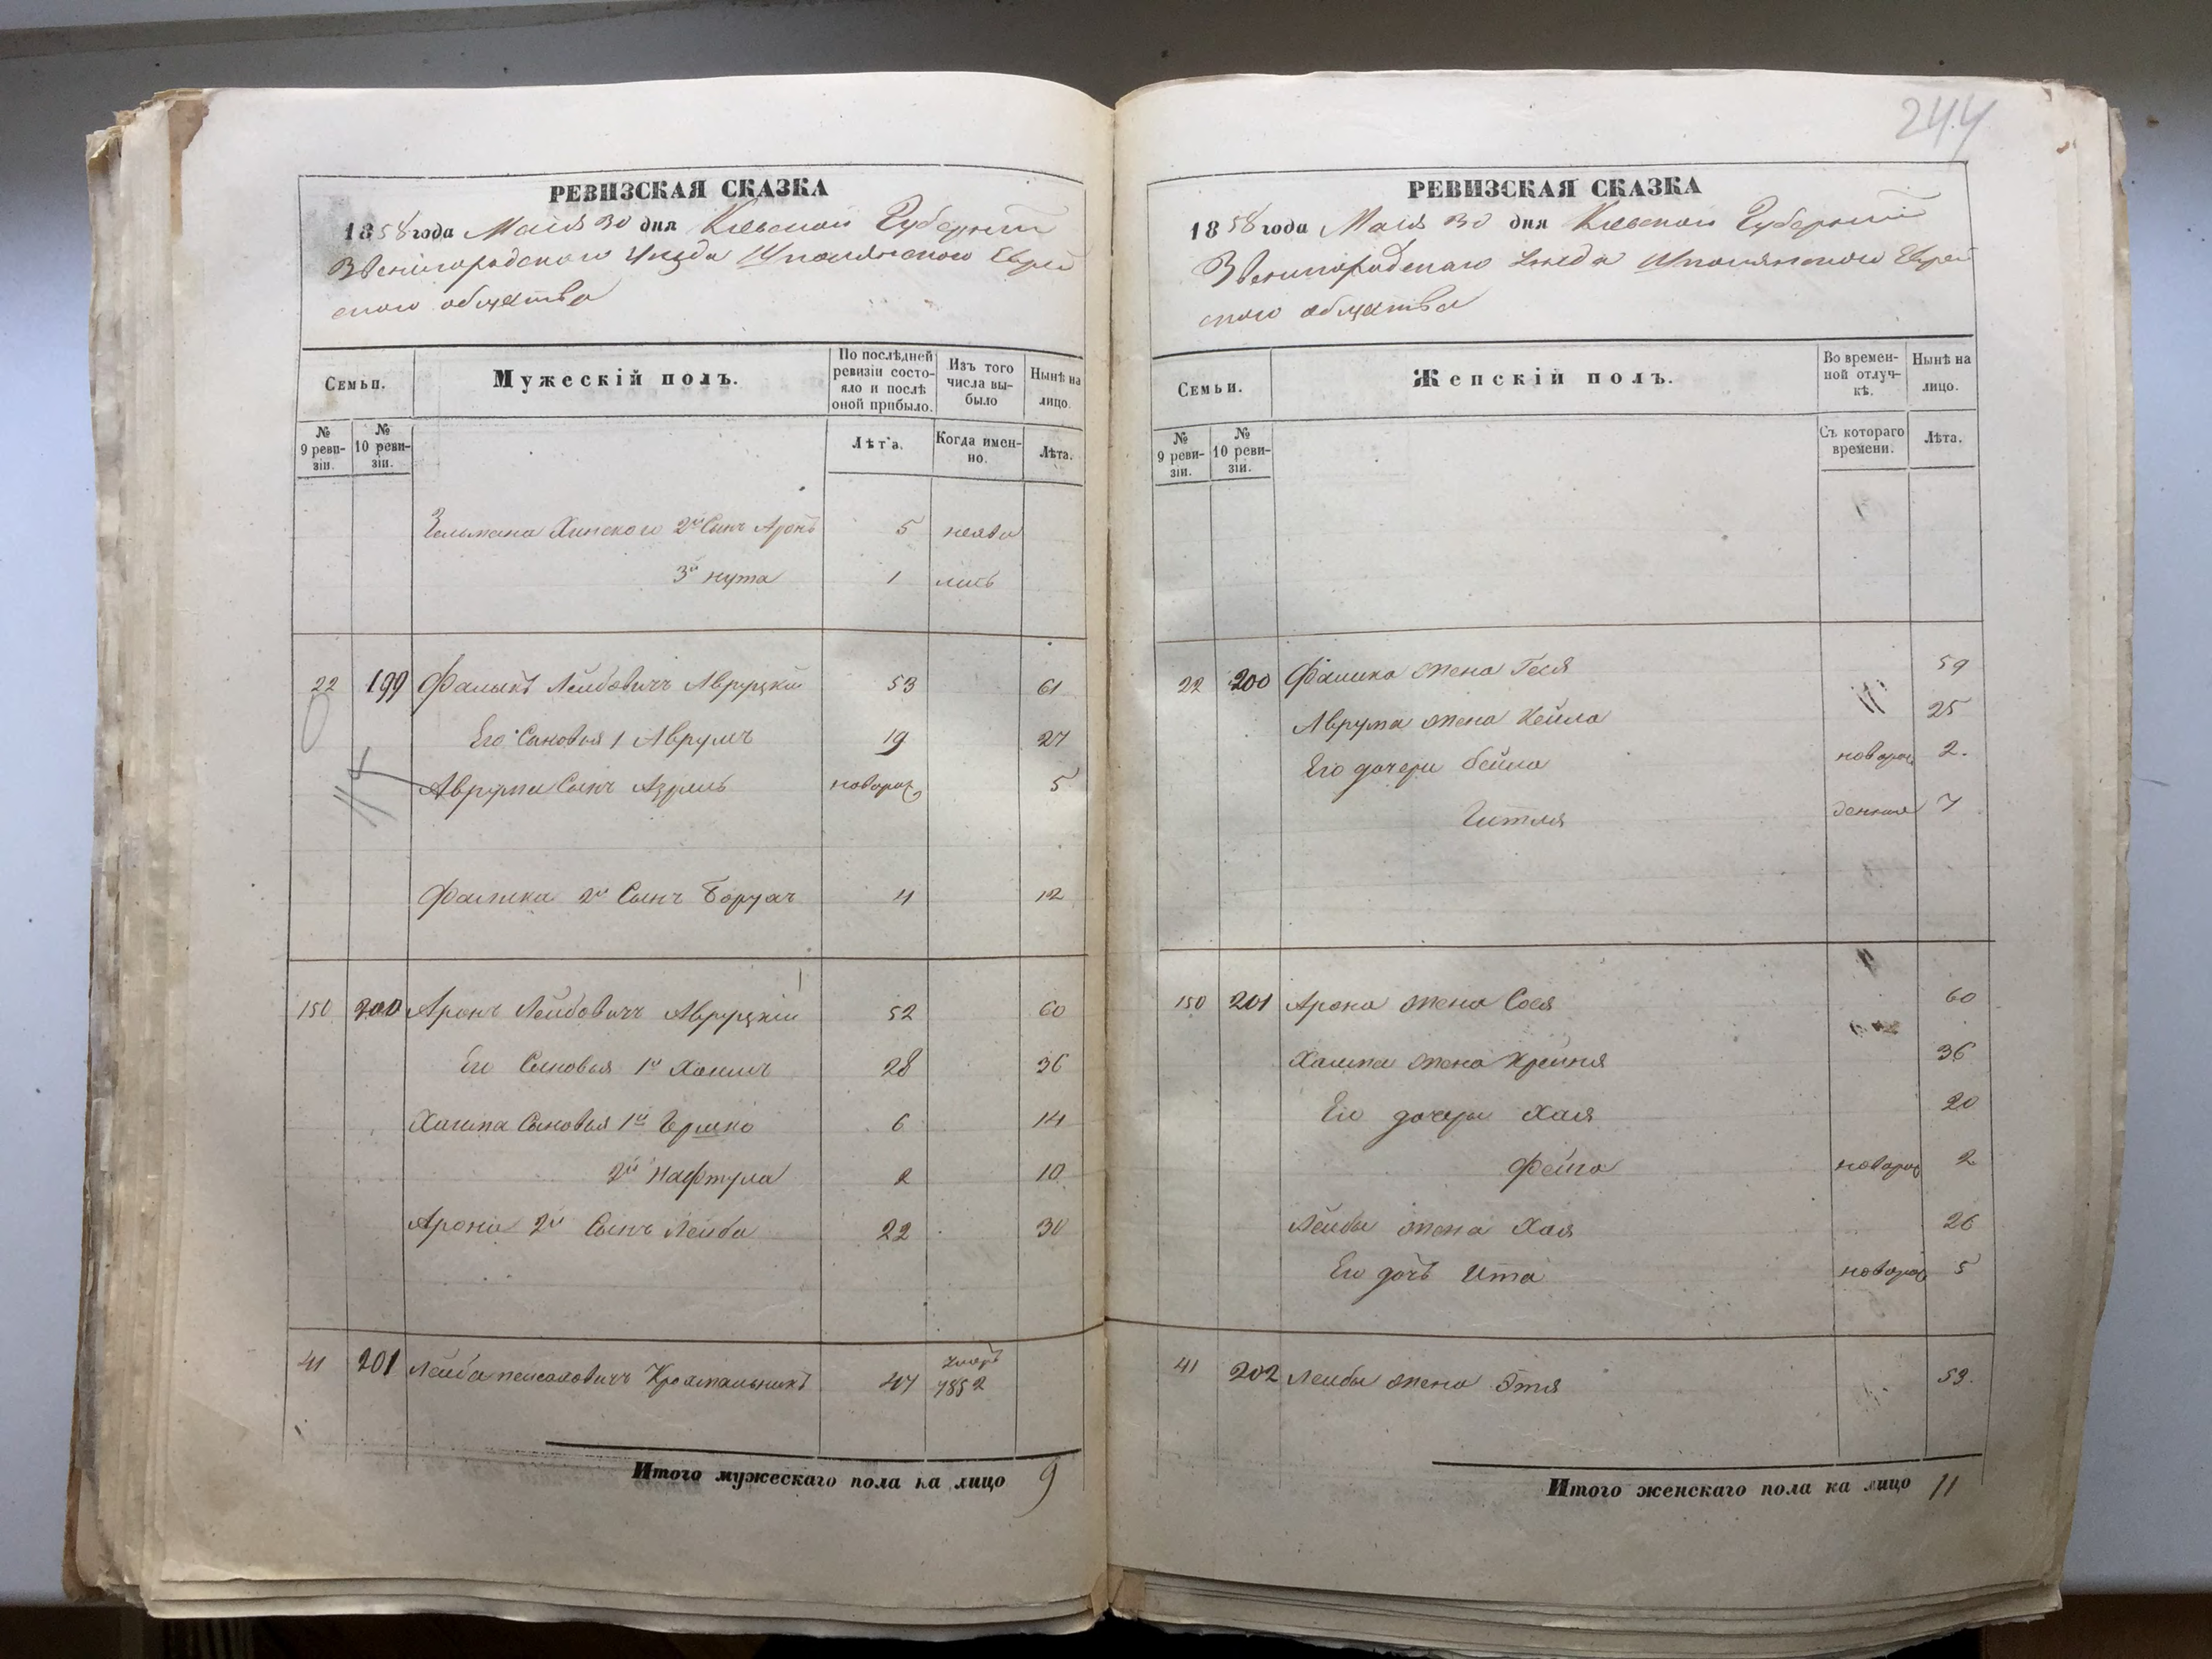 244
РЕВИЗСКАЯ СКАЗКА
1858 года Маія 30 дня Кіевской Губерніи
Звенигородскаго Уезда Шполянского Еврей
ского общества
Семьи.
Мужескій полъ.
По послѣдней ревизіи состояло и послѣ оной прибыло.
Изъ того числа выбыло
Нынѣ на лицо.
№ 9 ревизіи.
№ 10 ревизіи.
Лѣта.
Когда именно.
Лѣта.
2й Сынъ Аронъ 5 неяви
3й нута 1 лись
22 199 Фалыкъ Лейбовичъ Авруцкій 53 61
Его Сыновья 1 Аврумъ 19 27
Аврума Сынъ Азриль новорож 5
Фалика 2й Сынъ Борухъ 4 12
150 200 Аронъ Лейбовичъ Авруцкій 52 60
Его Сыновья 1й Хаимъ 28 36
Хаима Сыновья 1й Гершко 6 14
2й Нафтула 2 10
Арона 2й Сынъ Лейба 22 30
41 201 Лейба 47 умеръ 1852
Итого мужескаго пола на лицо 9
РЕВИЗСКАЯ СКАЗКА
1858 года Маія 30 дня Кіевской Губерніи
Звенигородскаго Уезда Шполянского Еврей
ского общества
Семьи.
Женскій полъ.
Во временной отлучкѣ.
Нынѣ на лицо.
№ 9 ревизіи.
№ 10 ревизіи.
Съ котораго времени.
Лѣта.
22 200 Фалика жена Геся 59
Аврума жена Хейла 25
Его дочери Бейла новорож 2.
Гитля денныя 7
150 201 Арона жена Сося 60
Хаима жена Крейня 36
Его дочери Хая 20
Фейга новорож 2
Лейбы жена Хая 26
Его дочь Ита новорож 5
41 202 Лейбы жена Этя 53.
Итого женскаго пола на лицо 11